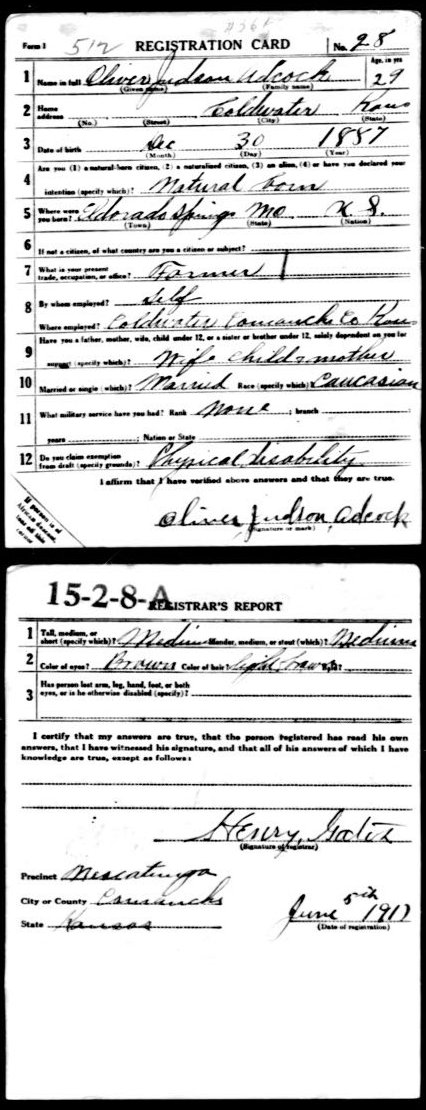 Form 1 512 REGISTRATION CARD No. 28
1 Name in full Oliver Judson Adcock Age, in yrs 29
(Given name) (Family name)
2 Home address Coldwater Kans
(No.) (Street) (City) (State)
3 Date of birth Dec 30 1887
(Month) (Day) (Year)
4 Are you (1) a natural-born citizen, (2) a naturalized citizen, (3) an alien, (4) or have you declared your
intention (specify which)? Natural Born
5 Where were you born? Eldorado Springs Mo U.S.
(Town) (State) (Nation)
6 If not a citizen, of what country are you a citizen or subject?
7 What is your present trade, occupation, or office? Farmer
8 By whom employed? Self
Where employed? Coldwater Comanche Co Kans
9 Have you a father, mother, wife, child under 12, or a sister or brother under 12, solely dependent on you for
support (specify which)? Wife child & mother
10 Married or single (which)? Married Race (specify which)? Caucasian
11 What military service have you had? Rank None ; branch
years ; Nation or State
12 Do you claim exemption from draft (specify grounds)? Physical disability
I affirm that I have verified above answers and that they are true.
Oliver Judson Adcock
(Signature or mark)
If person is of
African descent,
15-2-8-A REGISTRAR'S REPORT
1 Tall, medium, or short (specify which)? Medium Slender, medium, or stout (which)? Medium
2 Color of eyes? Brown Color of hair? Light Brown Bald?
3 Has person lost arm, leg, hand, foot, or both
eyes, or is he otherwise disabled (specify)?
I certify that my answers are true, that the person registered has read his own
answers, that I have witnessed his signature, and that all of his answers of which I have
knowledge are true, except as follows:
Henry
(Signature of registrar)
Precinct Nescatunga
City or County Comanche
State Kansas
June 5th 1917
(Date of registration)